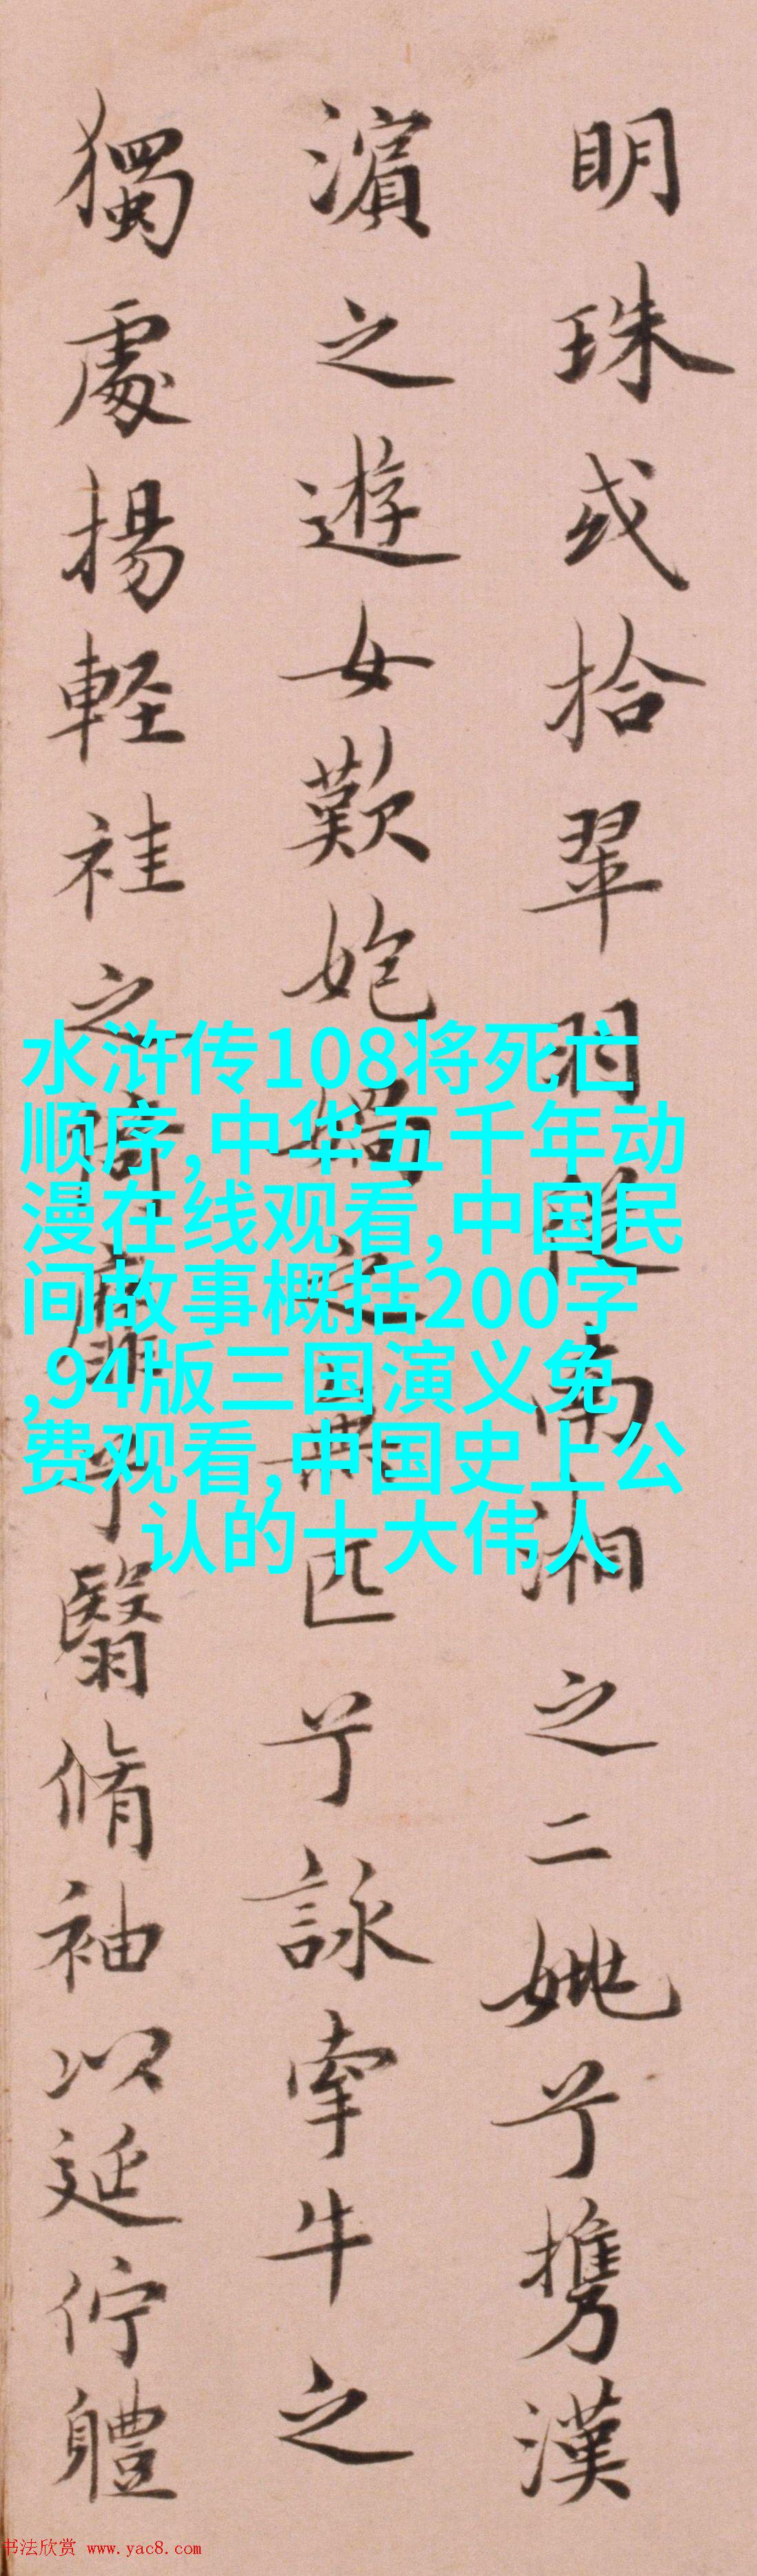 明珠或拾翠羽從南湘之二兮携漢
濵之遊女歎媧之無匹兮詠牽牛之
獨處揚軽袿之猗靡兮翳脩袖以延佇體
水浒传108将死亡
顺序,中华五千年动
漫在线观看,中国民
间故事概括200字
,94版三国演义免
费观看,中国史上公
认的十大伟人
书法欣赏 www.yac8.com